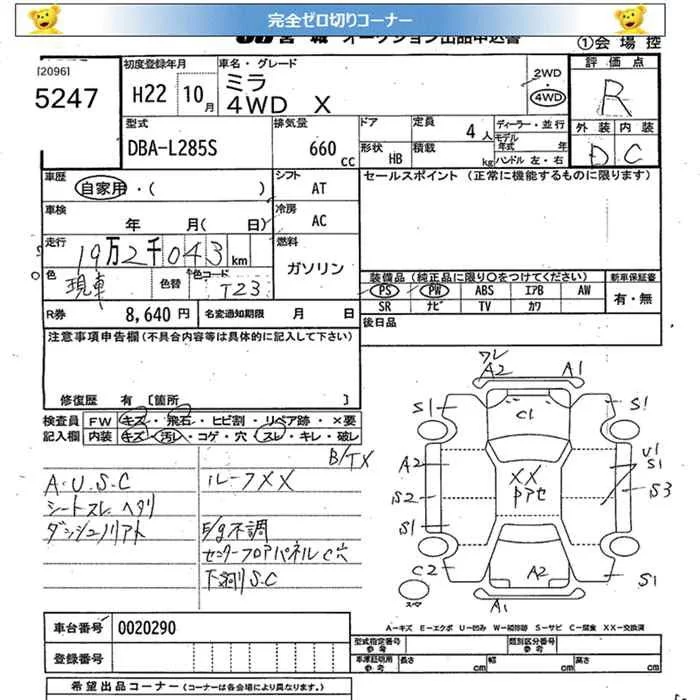 完全ゼロ切りコーナー
宮城 オークション出品申込書 ①会場控
[2096]
5247
初度登録年月
H22 10月
車名・グレード
ミラ
4WD X
2WD
・
4WD
評価点
R
外装 内装
D C
型式
DBA-L285S
排気量
660 cc
ドア
形状 HB
定員 4人
積載 kg
ディーラー・並行
モデル年式 年
ハンドル 左・右
車歴
自家用・( )
シフト AT
セールスポイント (正常に機能するものに限ります)
車検
年 月( 日)
冷房 AC
走行
19万2千043km
燃料
ガソリン
色
現車
色替
色コード
T23
装備品(純正品に限り○をつけてください)
PS PW ABS エアB AW
SR ナビ TV カワ
新車保証書
有・無
R券 8,640円
名変通知期限 月 日
後日品
注意事項申告欄(不具合内容等は具体的に記入して下さい)
修復歴 有 [箇所 ]
検査員 FW キズ・飛石・ヒビ割・リペア跡・×要
記入欄 内装 キズ・汚レ・コゲ・穴・スレ・キレ・破レ
B/TX
A・U・S・C
ルーフXX
シートスレ ヘタリ
ダッシュノリアト
E/g不調
センターフロアパネルC穴
下廻りS.C
ワレ
A2 A1
S1 C1 S1
A2 XX U1
S1
S2 S3
S1
C2 A2 S1
スペア
A1
A-キズ E-エクボ U-凹み W-補修跡 S-サビ C-腐食 XX-交換済
車台番号 0020290
登録番号
型式指定番号
参考
類別区分番号
参考
車庫証明用
参考
長さ cm 幅 cm 高さ cm
希望出品コーナー (コーナーは各会場により異なります。)